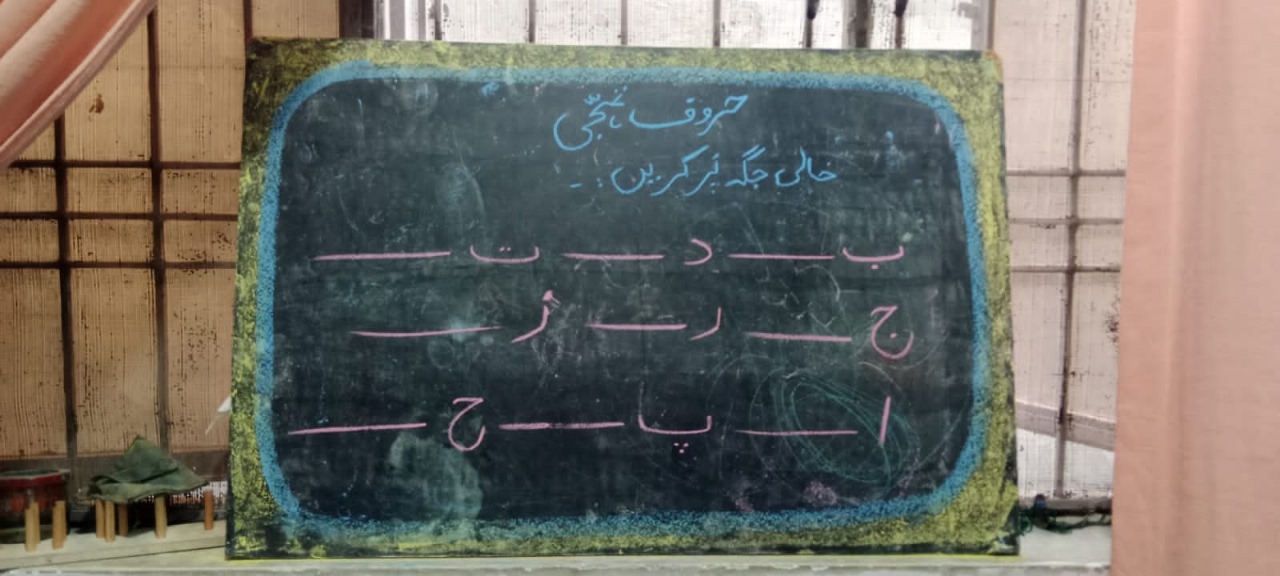 حروف تہجّی
خالی جگہ پُر کریں :۔
ب ___ د ___ ت ___
ج ___ ر ___ ز ___
ا ___ پ ___ ح ___